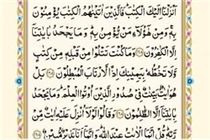 أَنزَلْنَا إِلَيْكَ الْكِتَٰبَ فَالَّذِينَ ءَاتَيْنَٰهُمُ الْكِتَٰبَ يُؤْمِنُونَ
بِهِ وَمِنْ هَٰؤُلَاءِ مَن يُؤْمِنُ بِهِ وَمَا يَجْحَدُ بِـَٔايَٰتِنَا
إِلَّا الْكَٰفِرُونَ ٤٧ وَمَا كُنتَ تَتْلُوا مِن قَبْلِهِ مِن كِتَٰبٍ
وَلَا تَخُطُّهُ بِيَمِينِكَ إِذًا لَّارْتَابَ الْمُبْطِلُونَ ٤٨
بَلْ هُوَ ءَايَٰتٌ بَيِّنَٰتٌ فِي صُدُورِ الَّذِينَ أُوتُوا الْعِلْمَ وَمَا يَجْحَدُ
بِـَٔايَٰتِنَا إِلَّا الظَّٰلِمُونَ ٤٩ وَقَالُوا لَوْلَا أُنزِلَ عَلَيْهِ ءَايَٰتٌ مِّن